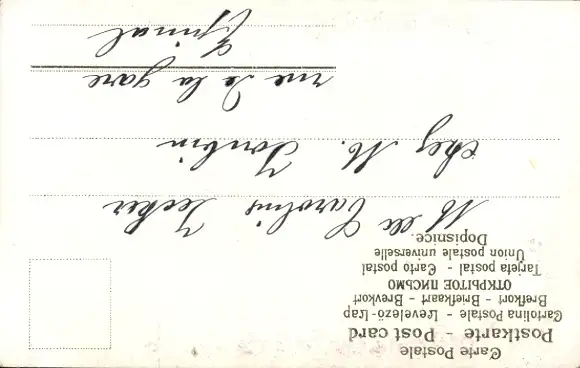 Carte Postale
Postkarte - Post card
Cartolina Postale - Levelező-Lap
Brefkort - Briefkaart - Brevkort
ОТКРЫТОЕ ПИСЬМО
Tarjeta postal - Carto postal
Union postale universelle
Dopisnice.
M elle Caroline
chez M.
rue de la gare
Epinal